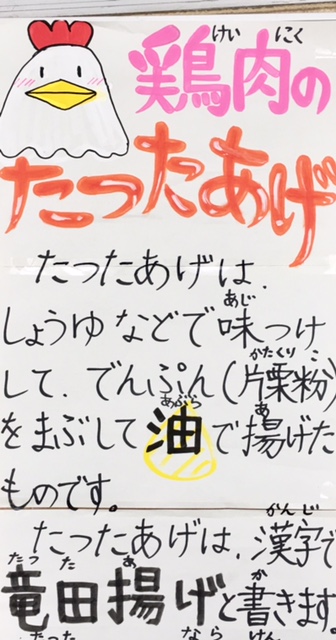 鶏肉の
たったあげ
たったあげは、
しょうゆなどで味つけ
して、でんぷん(片栗粉)
をまぶして油で揚げた
ものです。
たったあげは、漢字で
竜田揚げと書きます